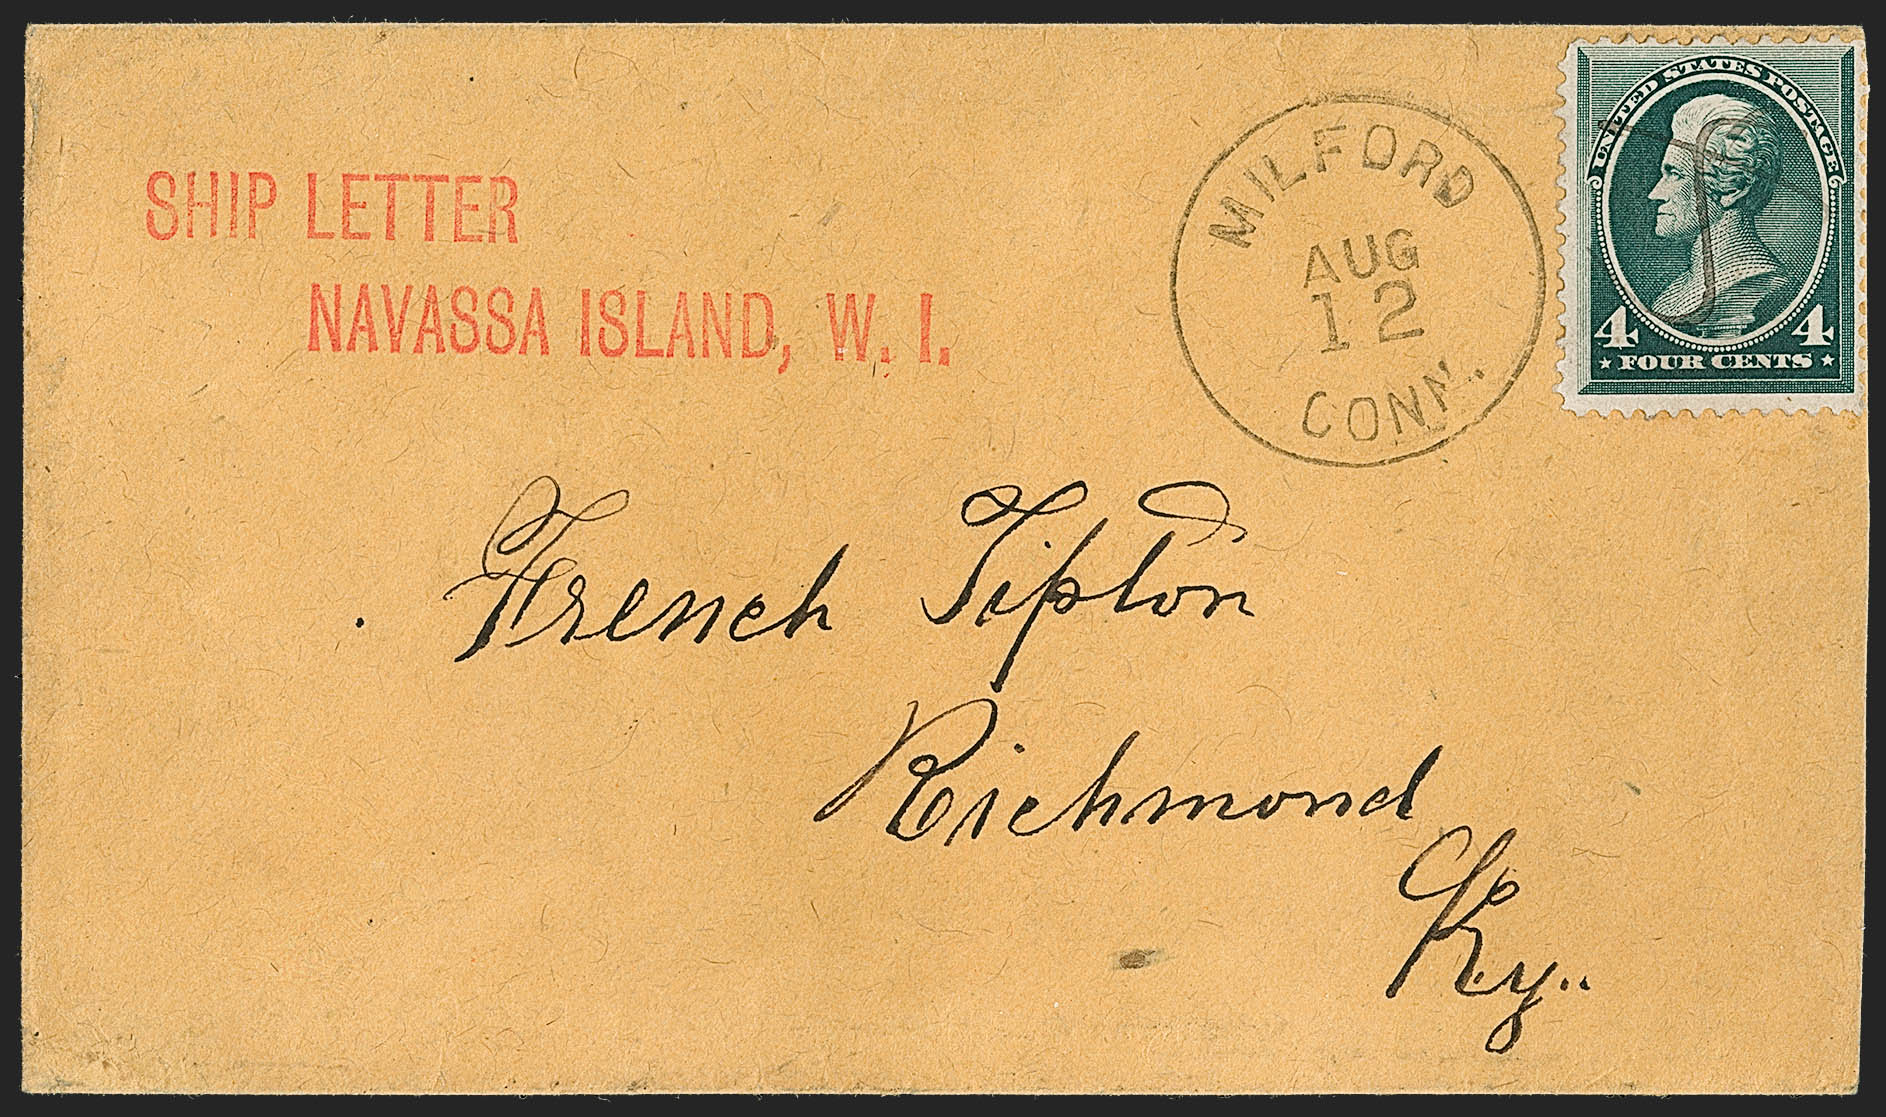 SHIP LETTER
NAVASSA ISLAND, W. I.
MILFORD
AUG
12
CONN.
UNITED STATES POSTAGE
4 4
FOUR CENTS
French Tipton
Richmond
Ky..